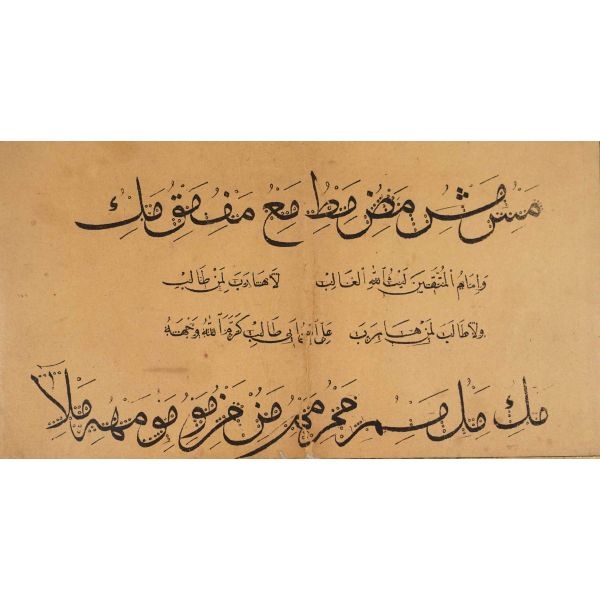 مس مش مص مط مع مف مق مك
وإمام المتقين ليث الله الغالب لا هارب لمن طالب
ولا طالب لمن هارب علي ابن ابي طالب كرم الله وجهه
مك مل مم من مو مه ملا